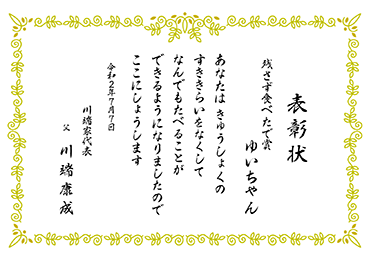 表彰状
残さず食べたで賞
ゆいちゃん
あなたは きゅうしょくの
すききらいをなくして
なんでもたべることが
できるようになりましたので
ここにしょうします
令和2年7月7日
川端家代表
父 川端康成